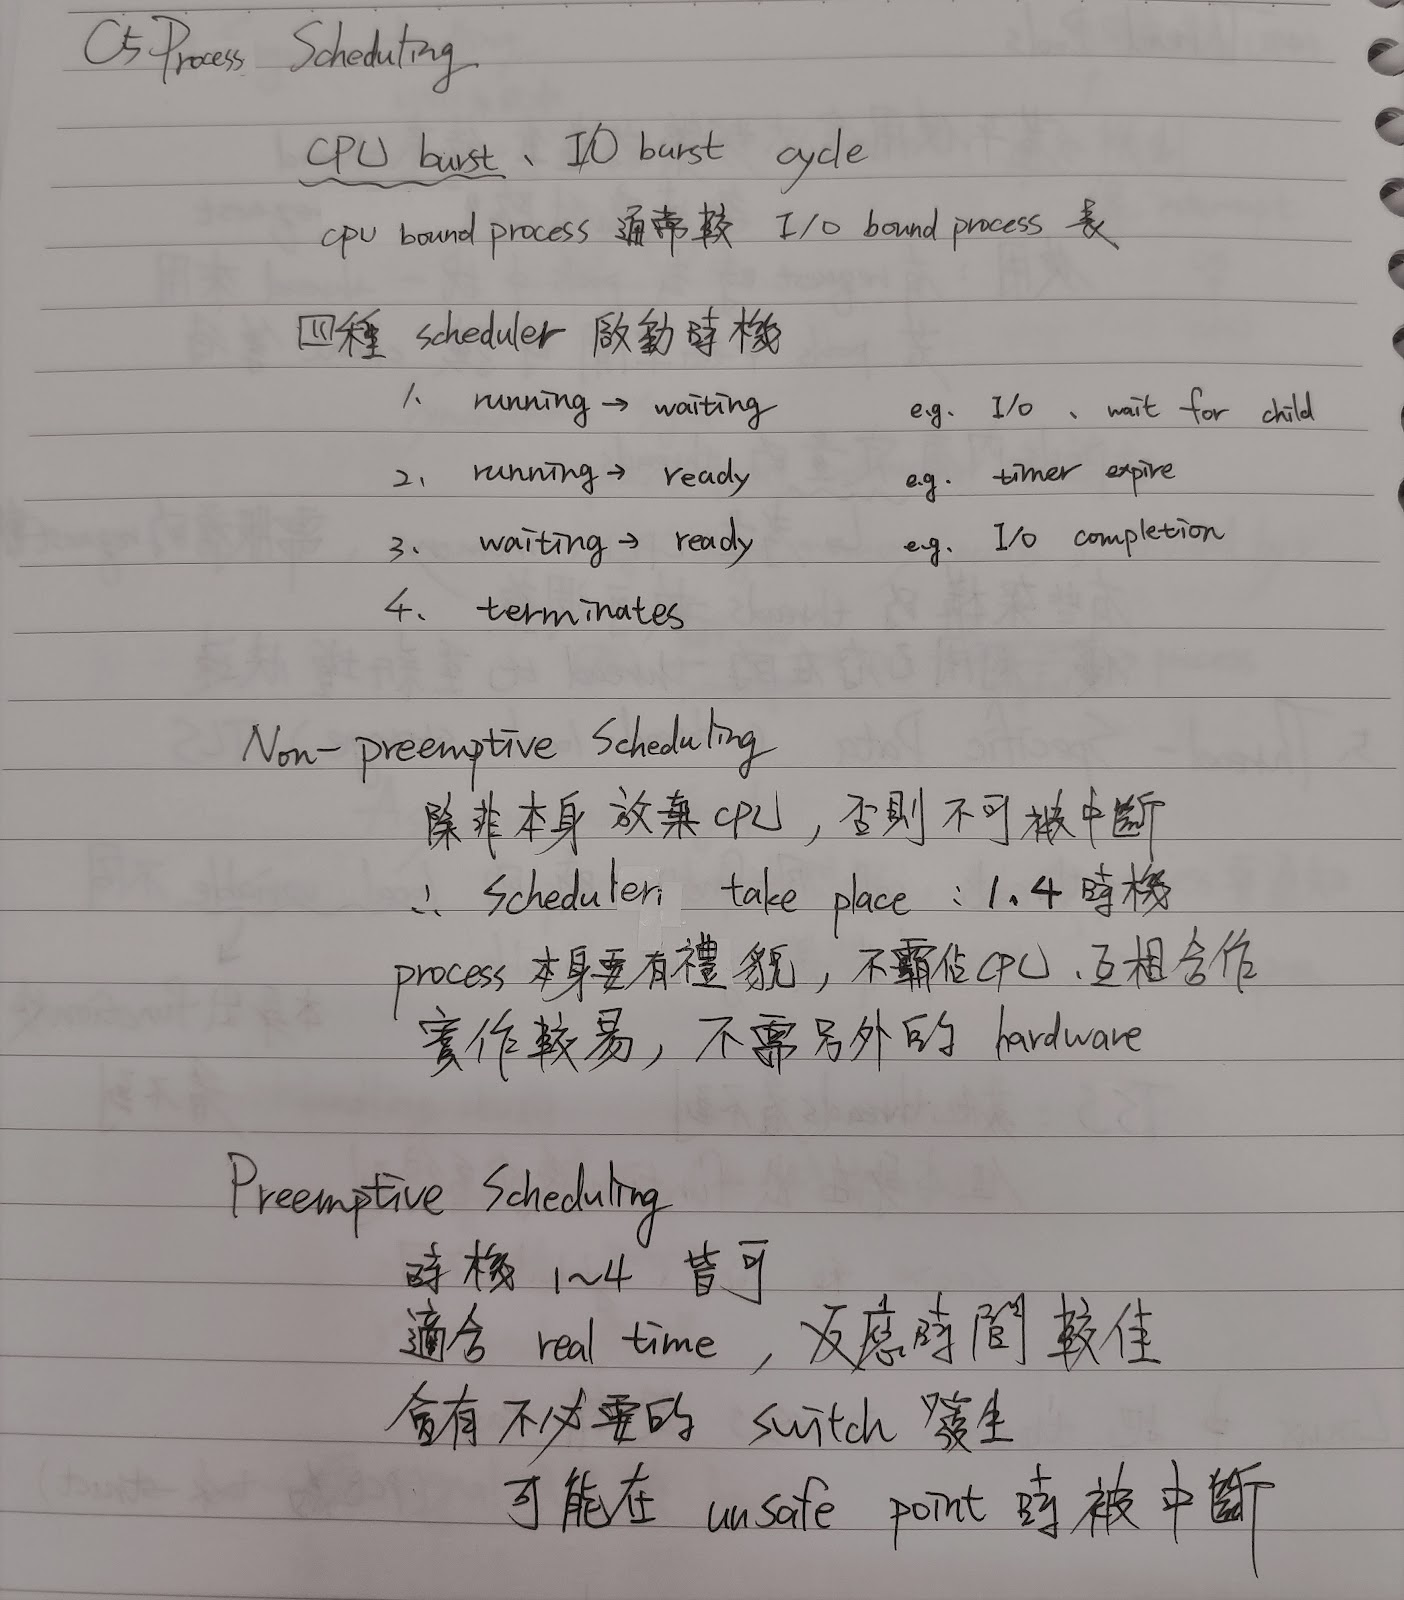 C5 Process Scheduling
CPU burst、I/O burst cycle
cpu bound process 通常較 I/O bound process 長
四種 scheduler 啟動時機
1. running → waiting e.g. I/O、wait for child
2. running → ready e.g. timer expire
3. waiting → ready e.g. I/O completion
4. terminates
Non-preemptive Scheduling
除非本身放棄CPU，否則不可被中斷
∴ Scheduler take place：1、4 時機
process 本身要有禮貌，不霸佔CPU、互相合作
實作較易，不需另外的 hardware
Preemptive Scheduling
時機 1~4 皆可
適合 real time，反應時間較佳
會有不必要的 switch 發生
可能在 unsafe point 時被中斷